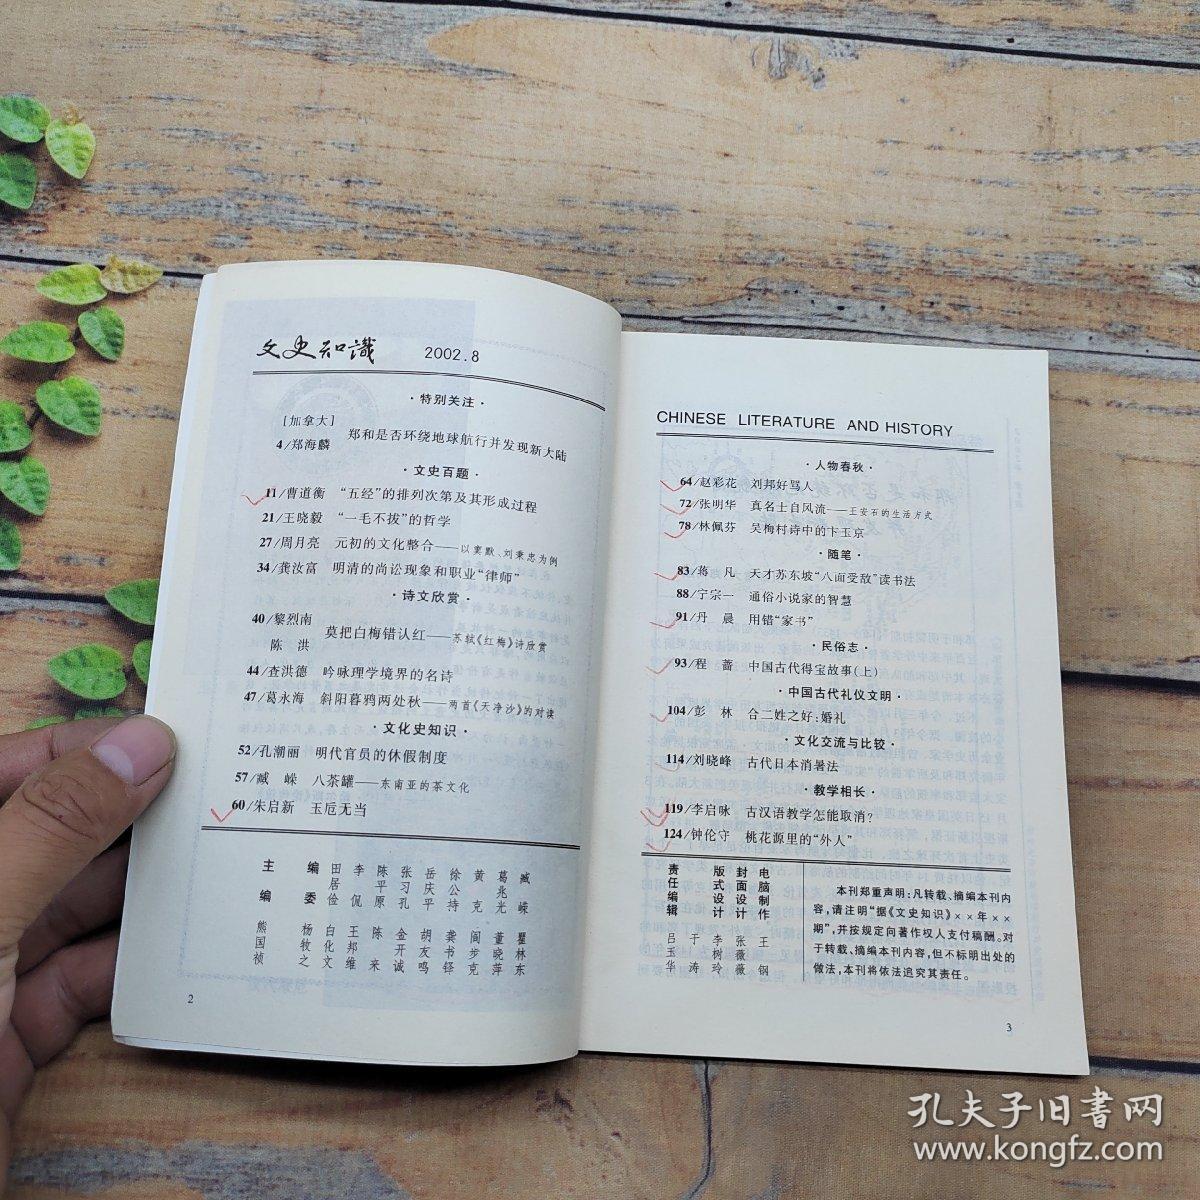 文史知識 2002.8
·特别关注·
[加拿大]
4/郑海麟 郑和是否环绕地球航行并发现新大陆
·文史百题·
11/曹道衡 “五经”的排列次第及其形成过程
21/王晓毅 “一毛不拔”的哲学
27/周月亮 元初的文化整合——以窦默、刘秉忠为例
34/龚汝富 明清的尚讼现象和职业“律师”
·诗文欣赏·
40/黎烈南
陈 洪 莫把白梅错认红——苏轼《红梅》诗欣赏
44/查洪德 吟咏理学境界的名诗
47/葛永海 斜阳暮鸦两处秋——两首《天净沙》的对读
·文化史知识·
52/孔潮丽 明代官员的休假制度
57/臧 嵘 八茶罐——东南亚的茶文化
60/朱启新 玉卮无当
主编
田居俭
李侃
陈平原
张习孔
岳庆平
徐公持
黄克
葛兆光
臧嵘
编委
熊国祯
杨牧之
白化文
王邦维
陈来
金开诚
胡友鸣
龚书铎
阎步克
董晓萍
瞿林东
2
CHINESE LITERATURE AND HISTORY
·人物春秋·
64/赵彩花 刘邦好骂人
72/张明华 真名士自风流——王安石的生活方式
78/林佩芬 吴梅村诗中的卞玉京
·随笔·
83/蒋 凡 天才苏东坡“八面受敌”读书法
88/宁宗一 通俗小说家的智慧
91/丹 晨 用错“家书”
·民俗志·
93/程 蔷 中国古代得宝故事(上)
·中国古代礼仪文明·
104/彭 林 合二姓之好:婚礼
·文化交流与比较·
114/刘晓峰 古代日本消暑法
·教学相长·
119/李启咏 古汉语教学怎能取消?
124/钟伦守 桃花源里的“外人”
责任编辑
吕玉华
于涛
版式设计
李树玲
封面设计
张薇薇
电脑制作
王钢
本刊郑重声明:凡转载、摘编本刊内
容,请注明“据《文史知识》××年××
期”,并按规定向著作权人支付稿酬。对
于转载、摘编本刊内容,但不标明出处的
做法,本刊将依法追究其责任。
3
孔夫子旧書网
www.kongfz.com